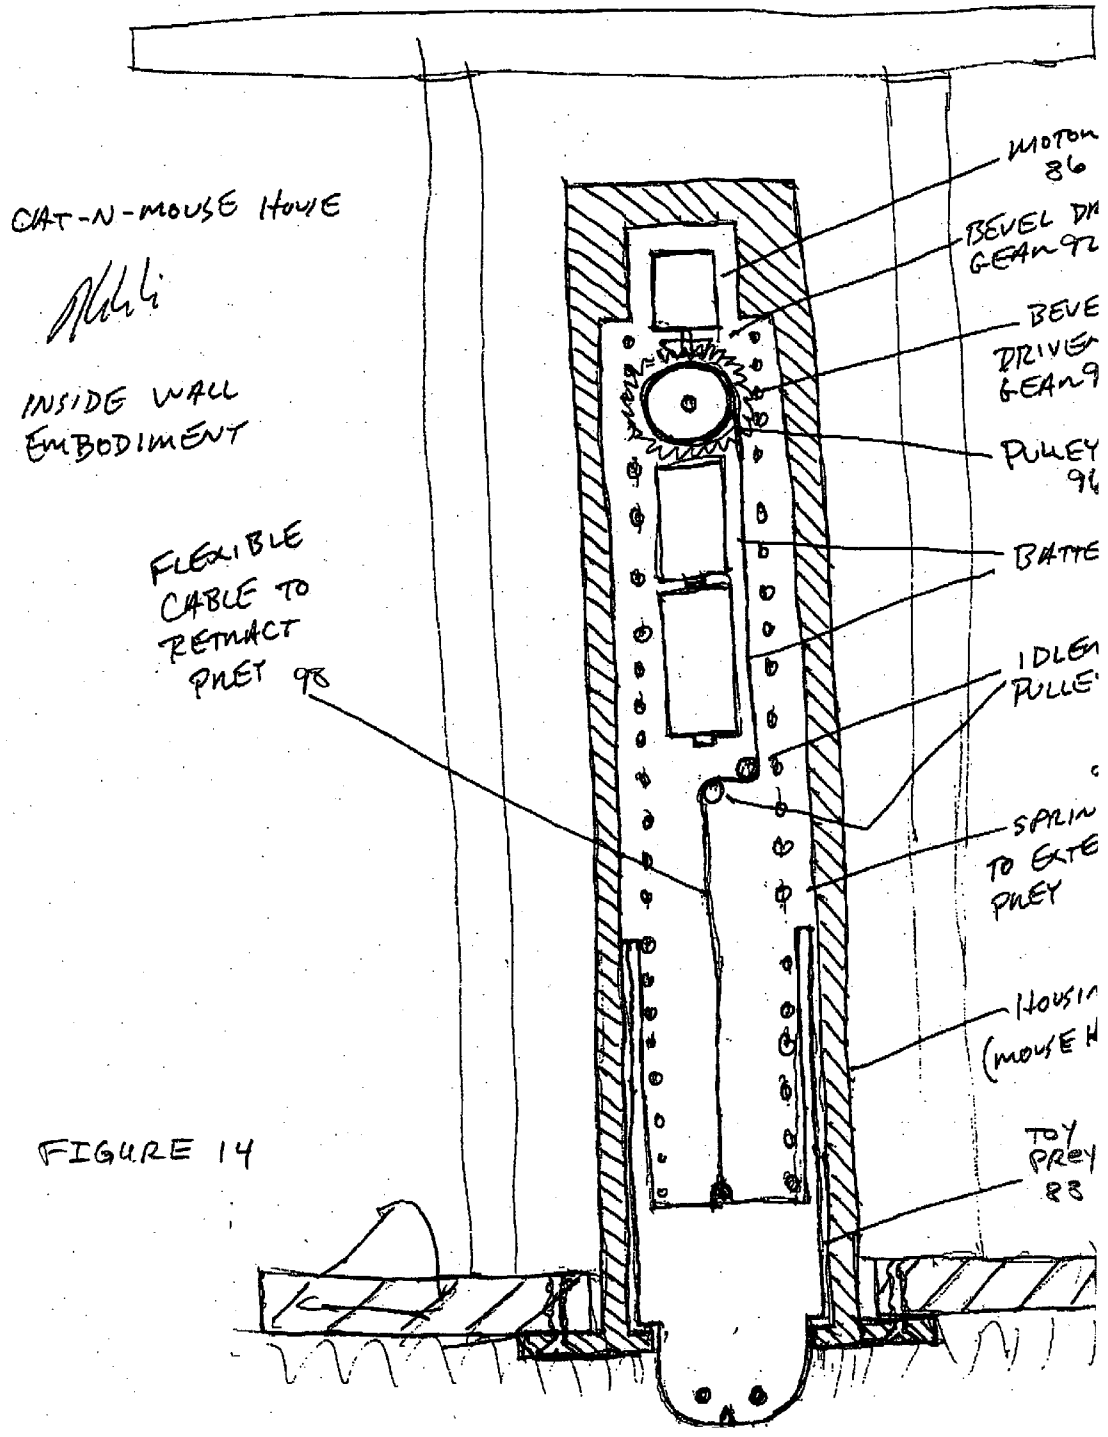 CAT-N-MOUSE HOUSE
INSIDE WALL
EMBODIMENT
FLEXIBLE
CABLE TO
RETRACT
PREY 98
FIGURE 14
MOTOR
86
BEVEL DR
GEAR 92
BEVE
DRIVEN
GEAR 9
PULLEY
96
BATTE
IDLER
PULLEY
SPRIN
TO EXTE
PREY
HOUSIN
(MOUSE H
TOY
PREY
88